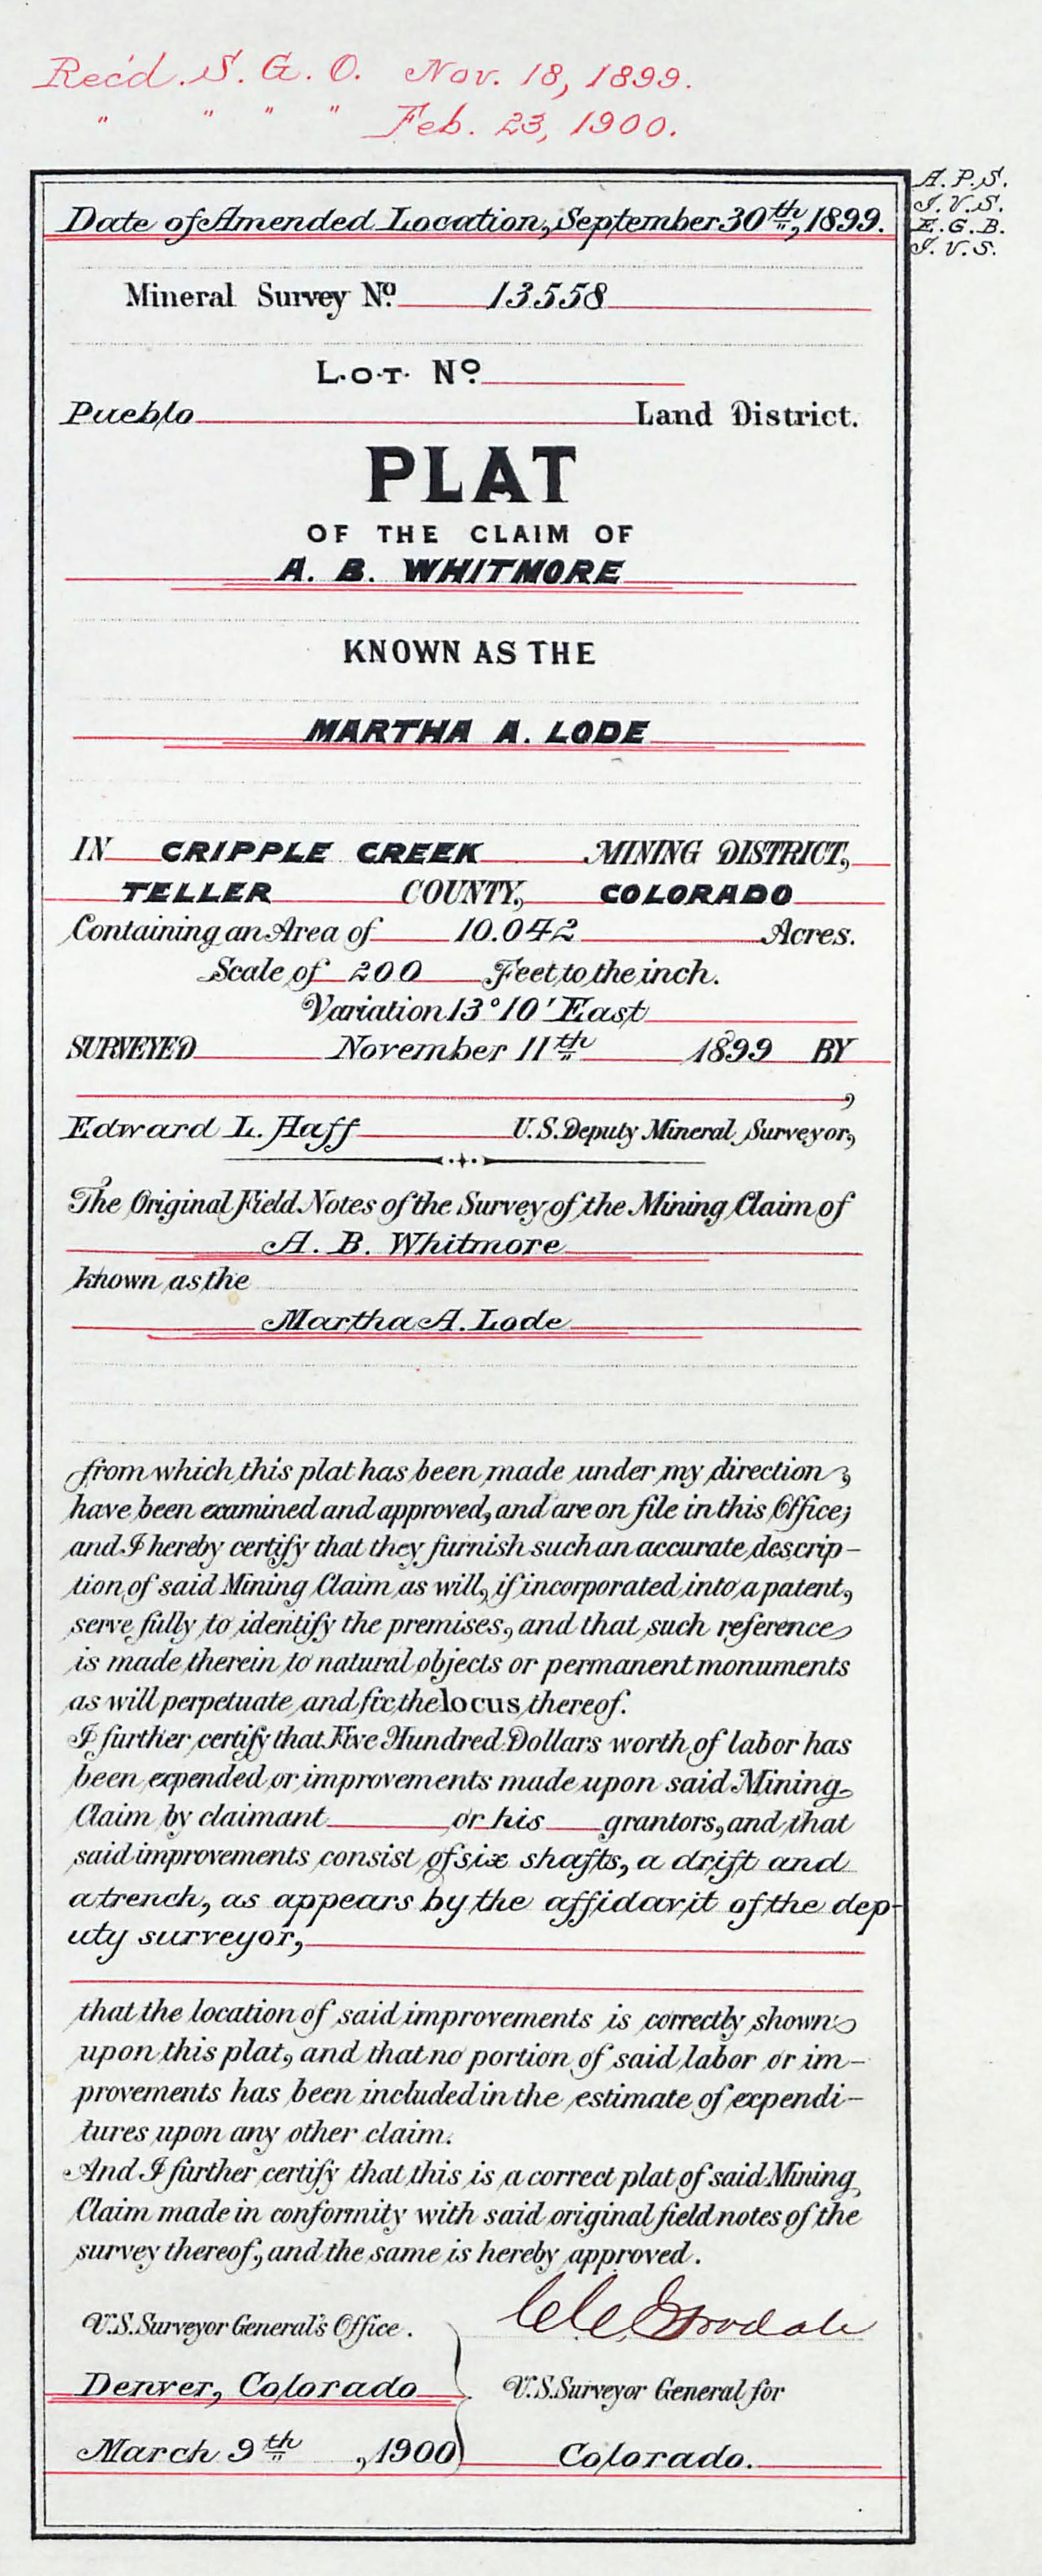 Rec'd. S. G. O. Nov. 18, 1899.
" " " " Feb. 23, 1900.
A. P. S.
J. V. S.
E. G. B.
J. V. S.
Date of Amended Location, September 30th, 1899.
Mineral Survey No. 13558
LOT No.
Pueblo Land District.
PLAT
OF THE CLAIM OF
A. B. WHITMORE
KNOWN AS THE
MARTHA A. LODE
IN CRIPPLE CREEK MINING DISTRICT,
TELLER COUNTY, COLORADO
Containing an Area of 10.042 Acres.
Scale of 200 Feet to the inch.
Variation 13° 10' East
SURVEYED November 11th 1899 BY
,
Edward L. Haff U.S. Deputy Mineral Surveyor,
The Original Field Notes of the Survey of the Mining Claim of
A. B. Whitmore
known as the
Martha A. Lode
from which this plat has been made under my direction,
have been examined and approved, and are on file in this Office;
and I hereby certify that they furnish such an accurate descrip–
tion of said Mining Claim as will, if incorporated into a patent,
serve fully to identify the premises, and that such reference
is made therein to natural objects or permanent monuments
as will perpetuate and fix the locus thereof.
I further certify that Five Hundred Dollars worth of labor has
been expended or improvements made upon said Mining
Claim by claimant or his grantors, and that
said improvements consist of six shafts, a drift and
a trench, as appears by the affidavit of the dep-
uty surveyor,
that the location of said improvements is correctly shown
upon this plat, and that no portion of said labor or im–
provements has been included in the estimate of expendi–
tures upon any other claim.
And I further certify that this is a correct plat of said Mining
Claim made in conformity with said original field notes of the
survey thereof, and the same is hereby approved.
U.S. Surveyor General's Office.
Denver, Colorado U.S. Surveyor General for
March 9th, 1900 Colorado.